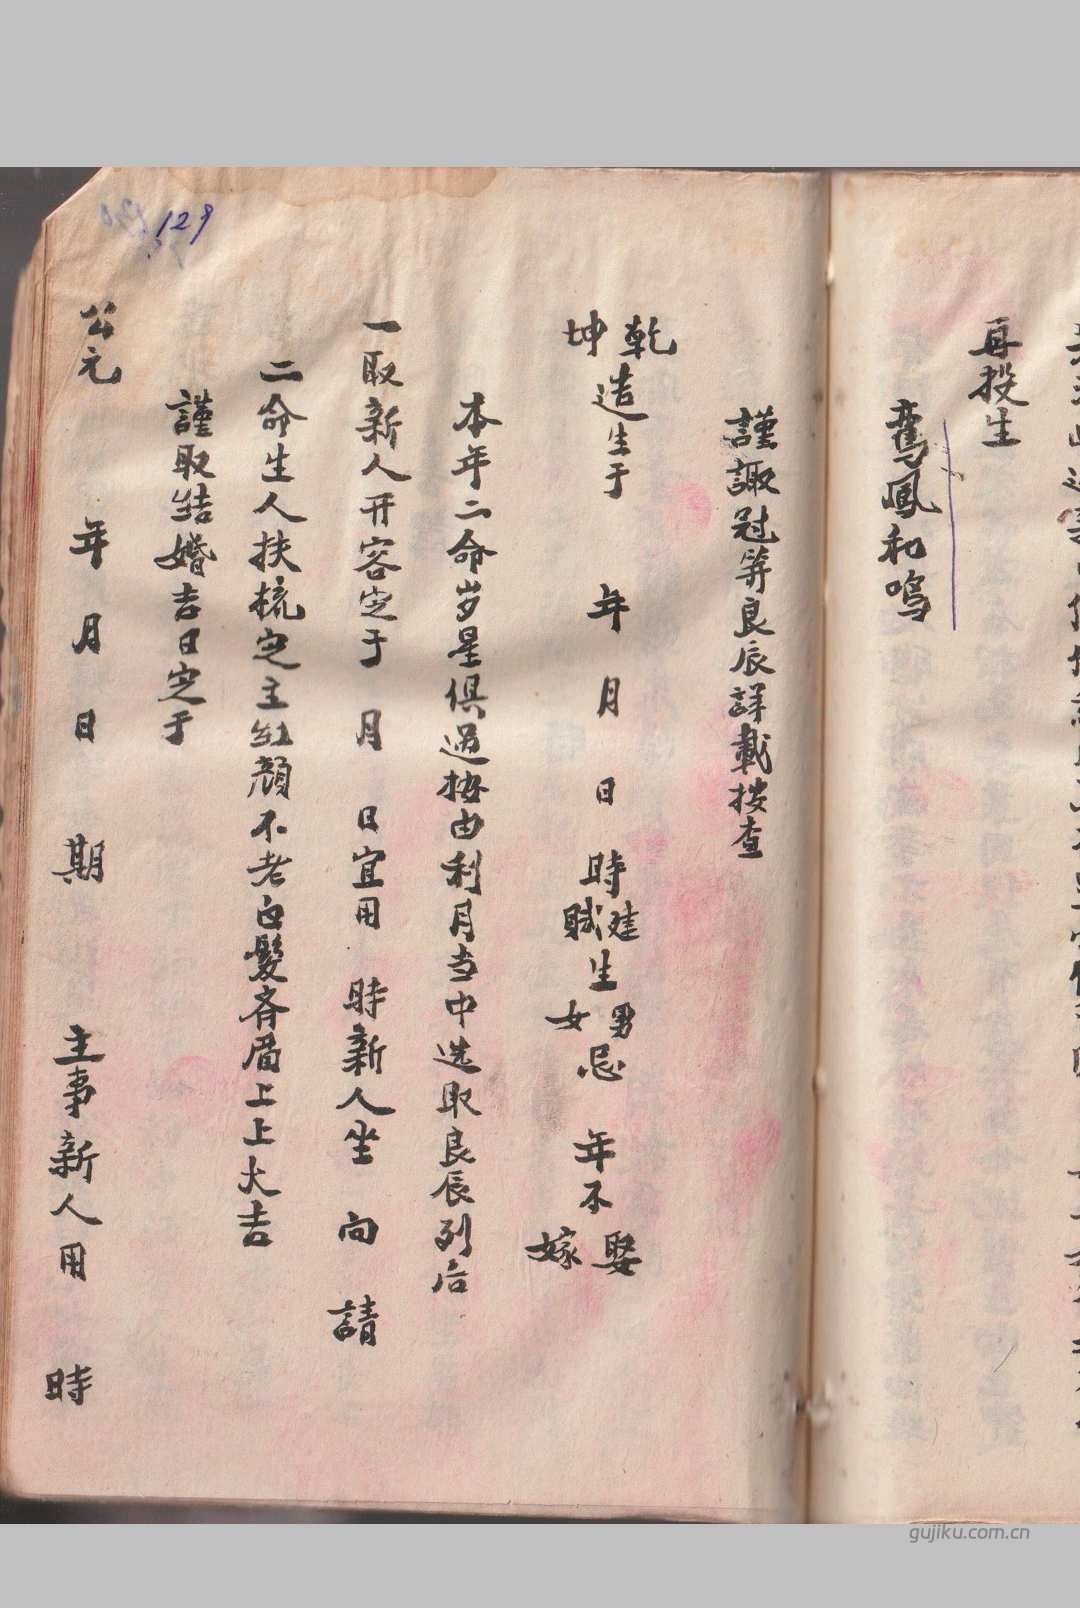 再投生
鸞鳳和鳴
謹諏冠笄良辰詳載按查
乾坤造生于 年 月 日 時建賦生男女忌 年不娶嫁
本年二命岁星俱過按由利月当中选取良辰列后
一取新人开容定于 月 日宜用 時新人坐 向 請
二命生人扶梳定主红顔不老白髮齐眉上上大吉
謹取结婚吉日定于
公元 年 月 日 期 主事新人用 時
129
gujiku.com.cn